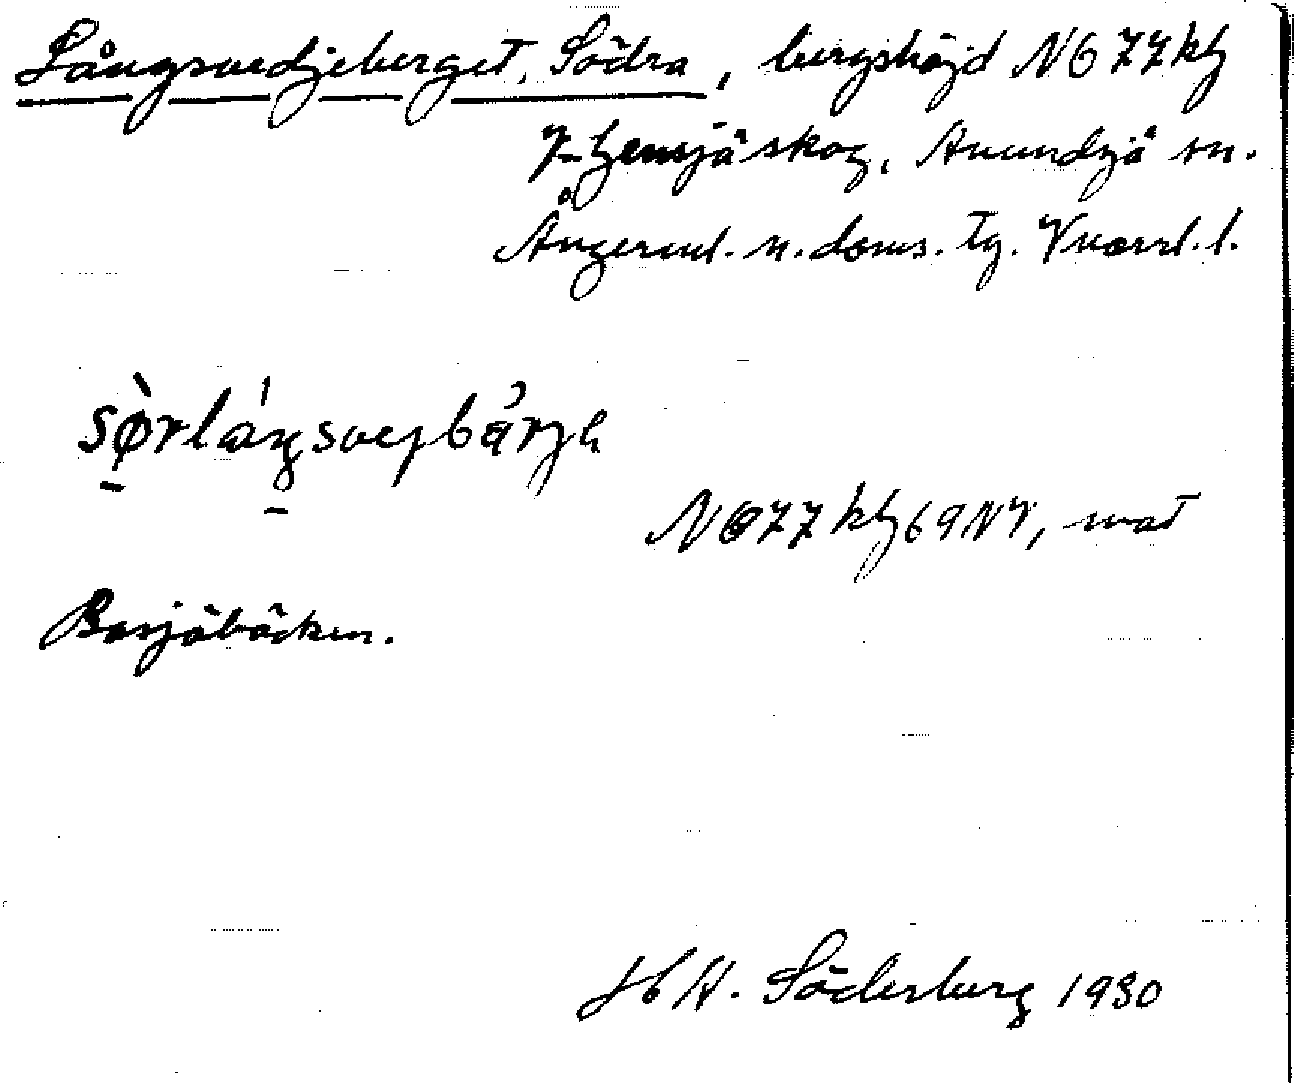 Långsvedjeberget, Södra, bergshöjd NG 77 kb
Gensjöskog, Anundsjö sn.
Ångerml. n. doms. tg. Vnorrl. l.
sørlåŋsvejbärjə
NG 77 kb 69 NV, mot
Borsjöbäcken.
H H. Söderberg 1930